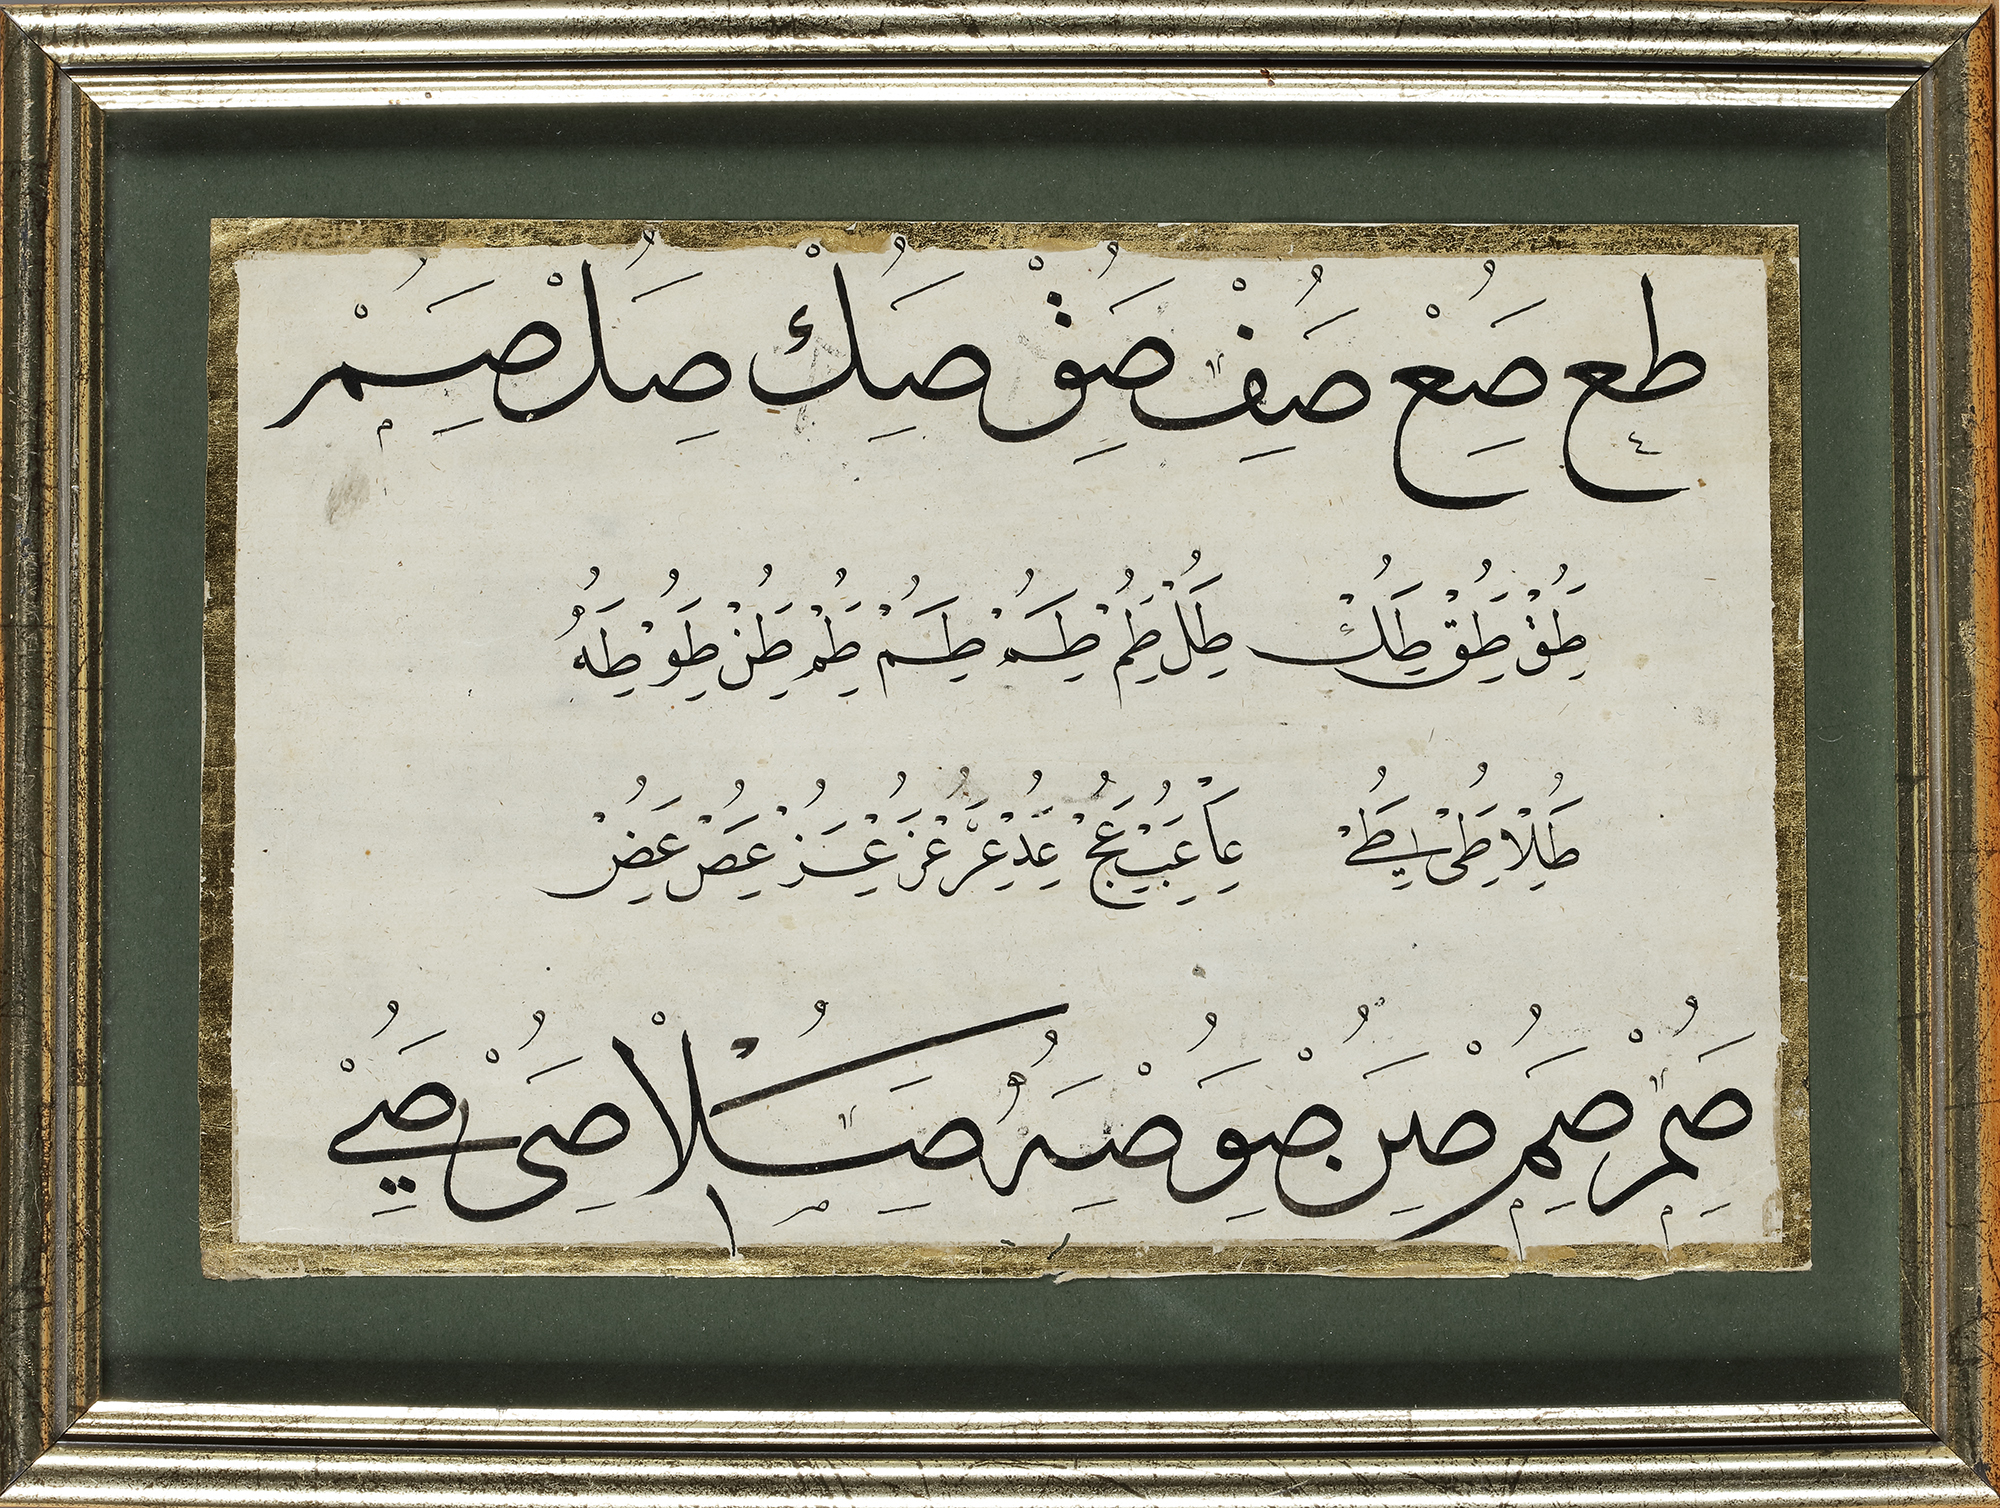 طع صع صف صق صك صل صم
طق طق طك طل طم طم طم طم طن طو طه
طلا طى طے عا عب عج عد عر عز عز عص عض
صم صم صن صو صه صكلا صى صے